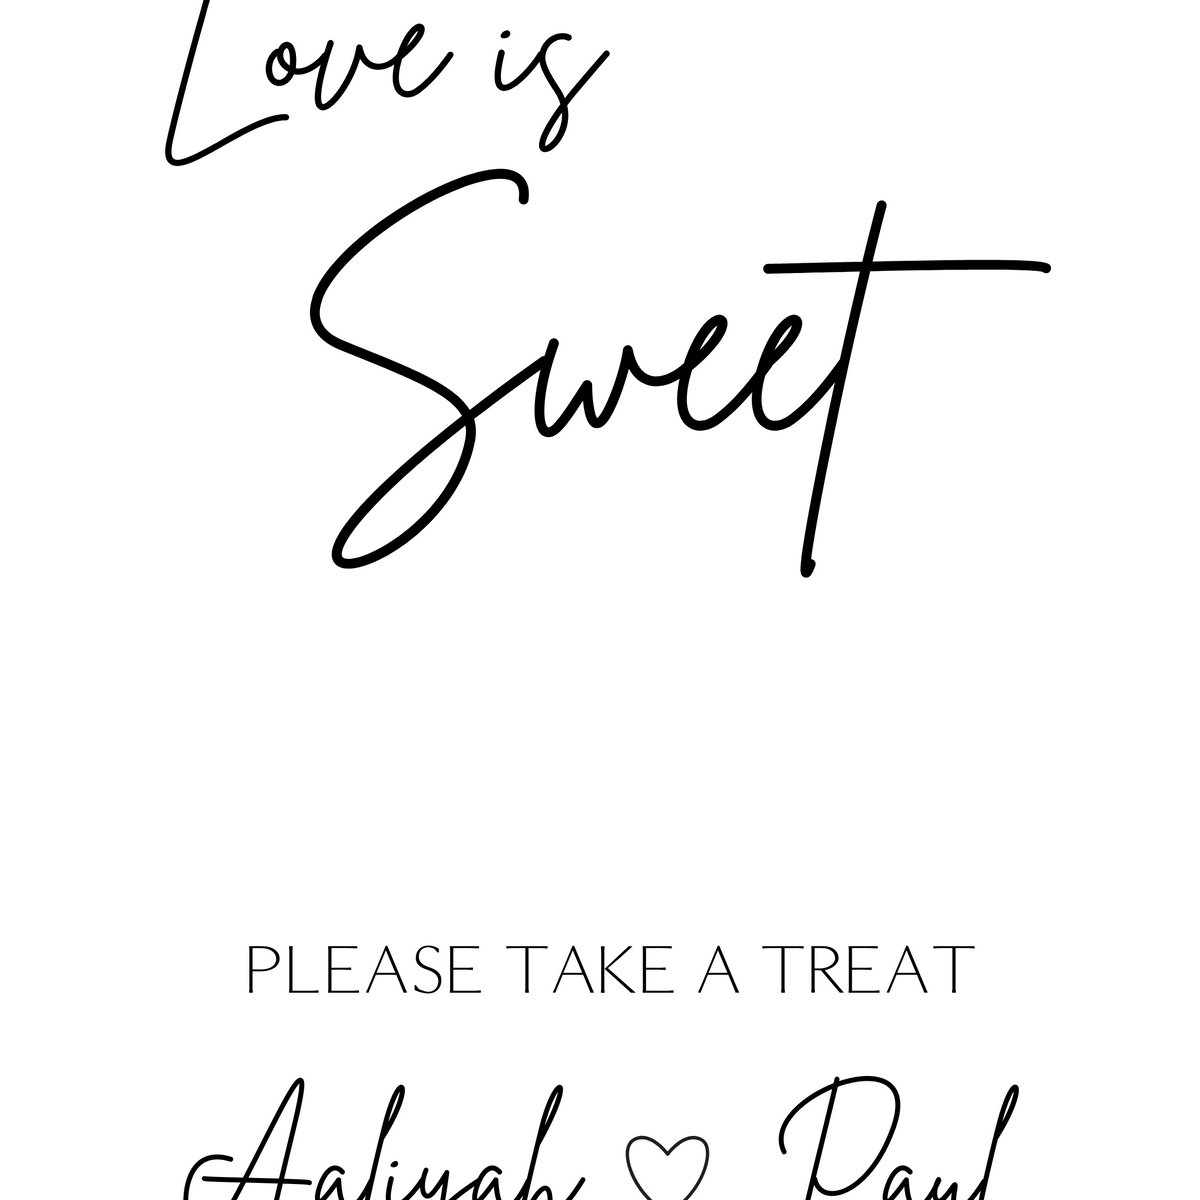 Love is
Sweet
PLEASE TAKE A TREAT
Aaliyah ♡ Paul